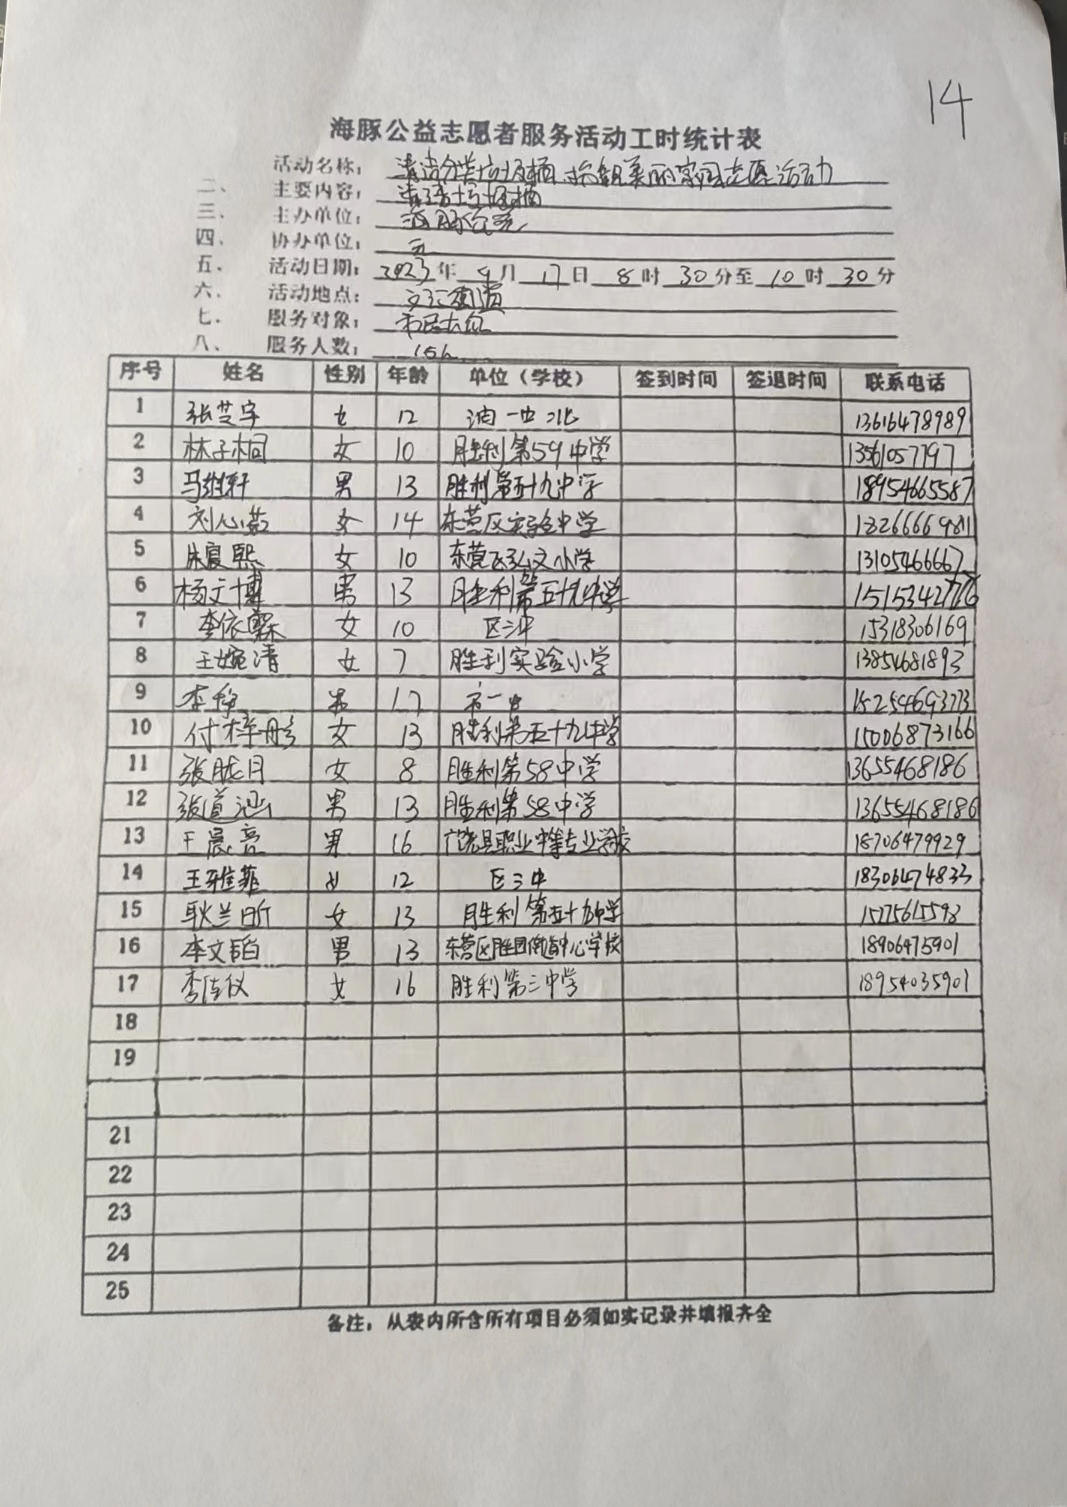 14
海豚公益志愿者服务活动工时统计表
活动名称： 清洁分类垃圾桶 美丽家园志愿活动
二、 主要内容： 清洁垃圾桶
三、 主办单位： 海豚公益
四、 协办单位： 无
五、 活动日期： 2023年 9月 17日 8时 30分至 10时 30分
六、 活动地点： 文汇街道
七、 服务对象： 市民大众
八、 服务人数：
序号 姓名 性别 年龄 单位（学校） 签到时间 签退时间 联系电话
1 张芝宇 女 12 13616478989
2 林子桐 女 10 胜利第59中学 13561057797
3 马继轩 男 13 胜利第五十九中学 18954665587
4 刘心茹 女 14 东营区实验中学 13266669811
5 朱夏熙 女 10 东营区弘文小学 13105466667
6 杨文博 男 13 胜利第五十九中学
7 李依霖 女 10 区三中 15318306169
8 王婉清 女 7 胜利实验小学 13854681893
9 男 17 市一中
10 付梓彤 女 13 胜利第五十九中学 15006873166
11 张胧月 女 8 胜利第58中学 13655468186
12 张道涵 男 13 胜利第58中学 13655468186
13 王晨亮 男 16 广饶县职业中等专业学校 18706479929
14 王雅菲 女 12 区三中 18306474833
15 耿兰昕 女 13 胜利第五十九中学 15275615593
16 李文韬 男 13 东营区胜园街道中心学校 18906475901
17 李佳仪 女 16 胜利第三中学 18954035901
18
19
21
22
23
24
25
备注：从表内所含所有项目必须如实记录并填报齐全